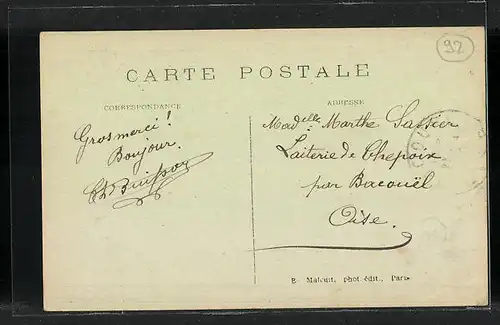 92
CARTE POSTALE
CORRESPONDANCE
ADRESSE
Gros merci!
Bonjour.
Ch Buisson
Madelle Marthe Sassier
Laiterie de Chepoix
par Bacouël
Oise.
Malcuit, phot. édit., Paris